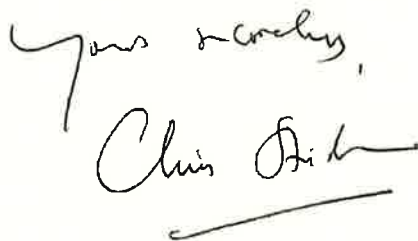 Yours sincerely,
Chris